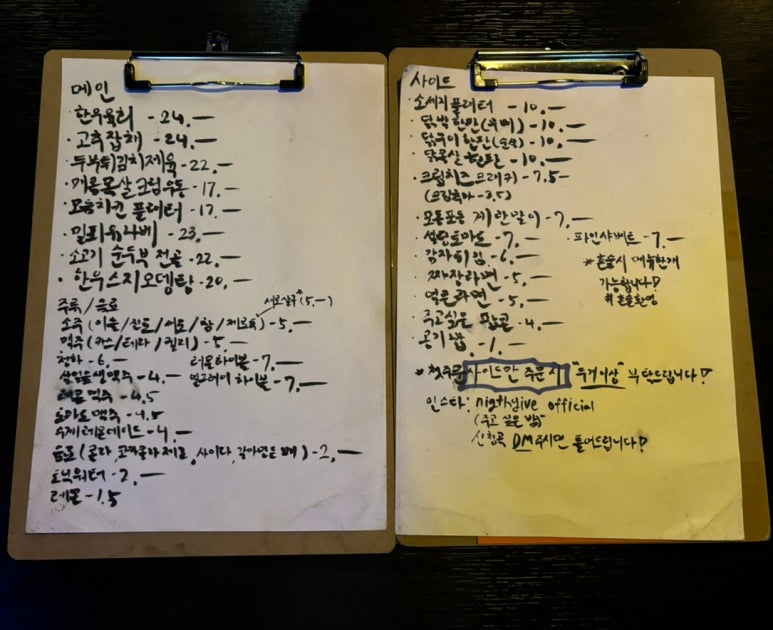 메인
· 한우육회 - 24.-
· 고추잡채 - 24.-
· 두부튀김치제육 - 22.-
· 매콤목살크림우동 - 17.-
· 모둠치킨 플래터 - 17.-
· 밀피유나베 - 23.-
· 소고기 순두부 전골 - 22.-
· 한우스지오뎅탕 - 20.-
주류/음료
(5.-)
소주 (이슬/진로/처음/참/제로) - 5.-
맥주 (카스/테라/켈리) - 5.-
청하 - 6.- 레몬하이볼 - 7.-
살얼음생맥주 - 4.- 얼그레이 하이볼 - 7.-
레몬맥주 - 4.5
토마토맥주 - 4.5
수제레몬에이드 - 4.-
음료 (콜라, 코카콜라제로, 사이다, 갈아만든 배) - 2.-
토닉워터 - 2.-
레몬 - 1.5
사이드
· 소세지플래터 - 10.-
· 닭박 한판 - 10.-
· 닭구이 한판 - 10.-
· 닭목살 한판 - 10.-
· 크림치즈크래커 - 7.5-
(크림추가 - 3.5)
· 모둠포동 계란말이 - 7.-
· 설탕토마토 - 7.- · 파인샤베트 - 7.-
· 감자튀김 - 6.-
· 짜장라면 - 5.-
· 얼큰라면 - 5.-
· 주고싶은 팝콘 - 4.-
· 공기밥 - 1.-
* 혼술시 메뉴한개
가능합니다!
# 혼술환영
* 첫주문 사이드만 주문 시 "두개이상" 부탁드립니다!
인스타: nigthgive official
(주고 싶은 밤)
신청곡 DM주시면 틀어드립니다!